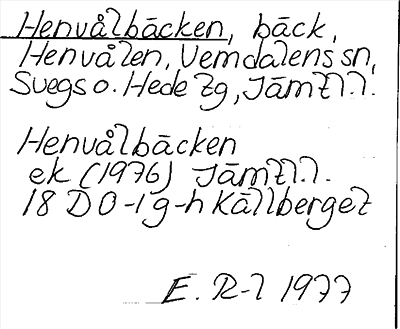 Henvålbäcken, bäck,
Henvålen, Vemdalens sn,
Svegs o. Hede tg, Jämtl. l.
Henvålbäcken
ek (1976) Jämtl. l.
18 D 0-1 g-h Källberget
E. R-l 1977